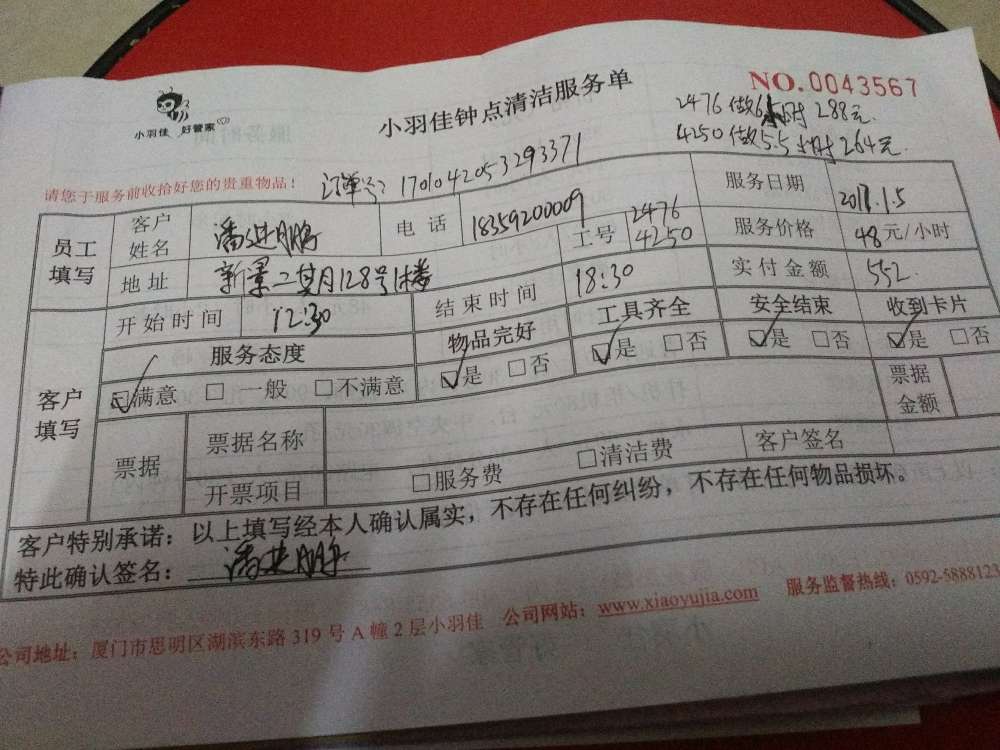 小羽佳 好管家
小羽佳钟点清洁服务单
NO.0043567
2476做6小时 288元
4250做5.5小时 264元
请您于服务前收拾好您的贵重物品！
订单号：1701042053293371
员工填写
客户姓名 潘进鹏 电话 18359200009 服务日期
地址 新景二其月128号1楼 工号 2476 4250 服务价格 48元/小时
客户填写
开始时间 12:30 结束时间 18:30 实付金额 552
服务态度 物品完好 工具齐全 安全结束 收到卡片
☑满意 □一般 □不满意 ☑是 □否 ☑是 □否 ☑是 □否 ☑是 □否
票据 票据名称 票据金额
开票项目 □服务费 □清洁费 客户签名
客户特别承诺：以上填写经本人确认属实，不存在任何纠纷，不存在任何物品损坏。
特此确认签名：潘进鹏
公司地址：厦门市思明区湖滨东路319号A幢2层小羽佳 公司网站：www.xiaoyujia.com 服务监督热线：0592-5888123